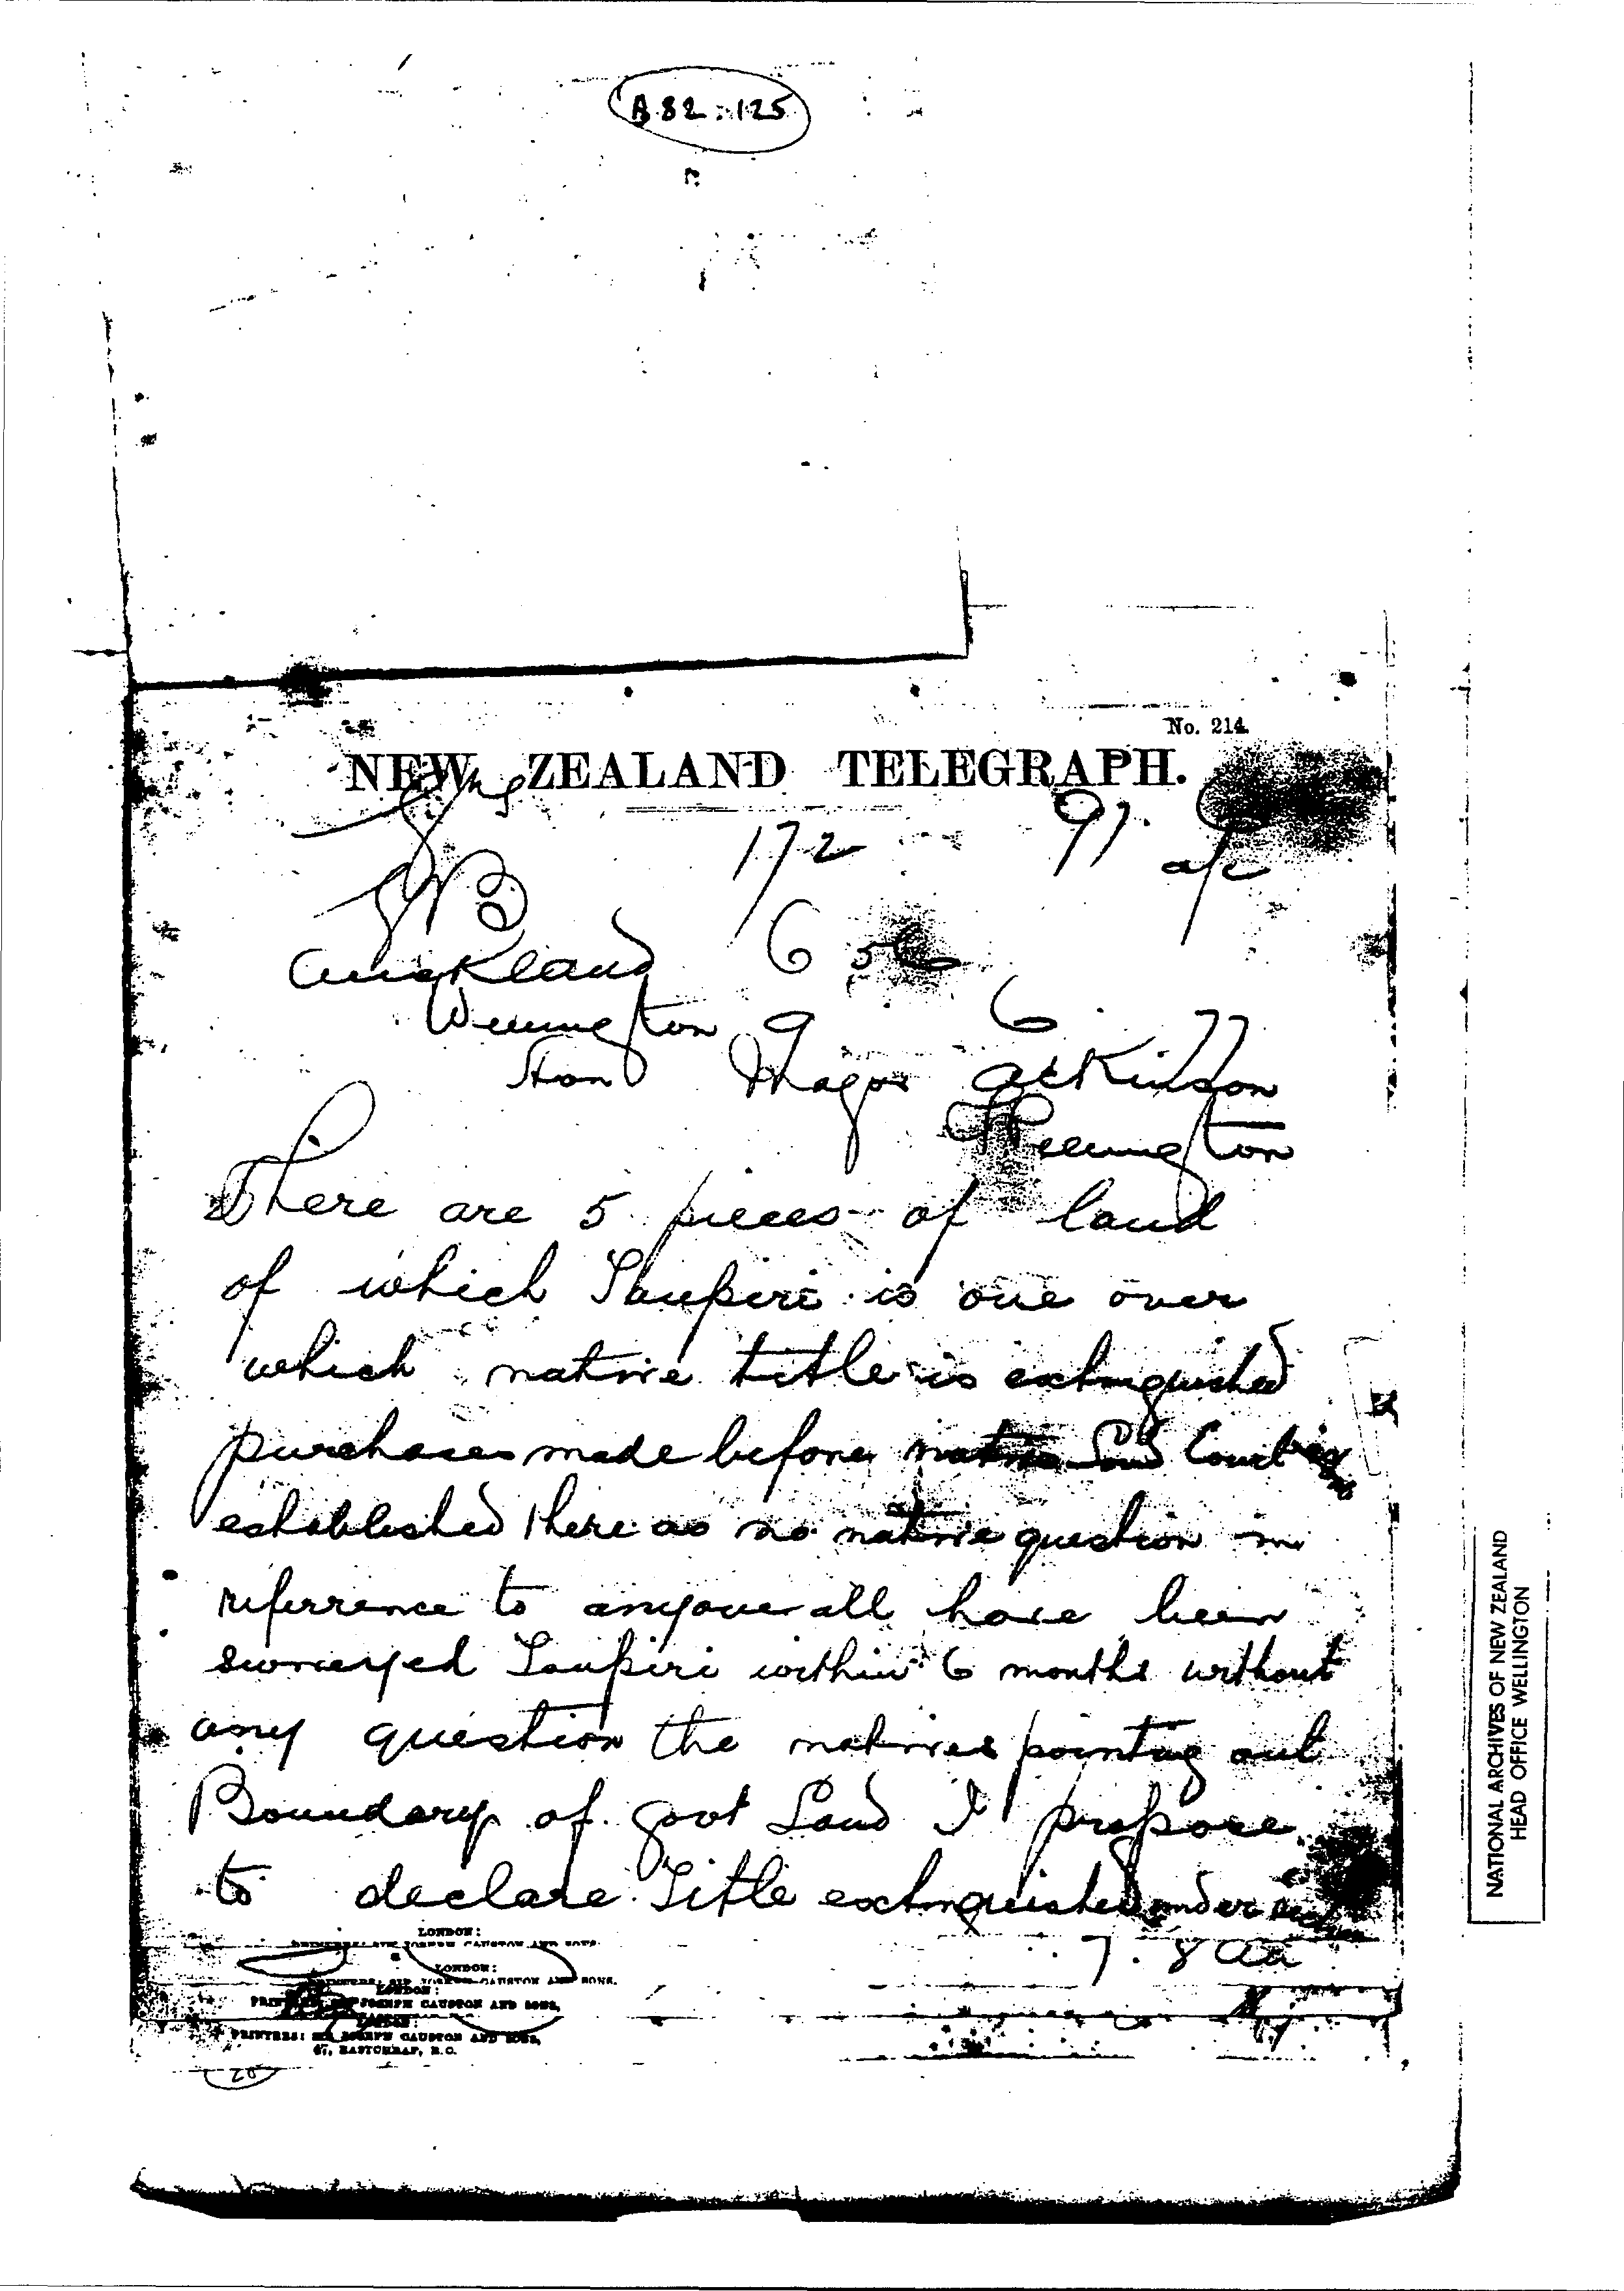 B.82.125
No. 214.
NEW ZEALAND TELEGRAPH.
172 91. a/c
Auckland 6 56
Wellington 9 6. 77
Hon Major Atkinson
Wellington
There are 5 pieces of land
of which Taupiri is one over
which native title is extinguished
purchases made before native Land Court
established there as no native question in
referrence to anyone all have been
surveyed Taupiri within 6 months without
any question the natives pointing out
Boundary of Govt Land I propose
to declare Title extinguished under
7.8
LONDON:
LONDON:
LONDON:
JOSEPH CAUSTON AND SONS,
PRINTERS: SIR JOSEPH CAUSTON AND SONS,
47, EASTCHEAP, E.C.
20
NATIONAL ARCHIVES OF NEW ZEALAND
HEAD OFFICE WELLINGTON